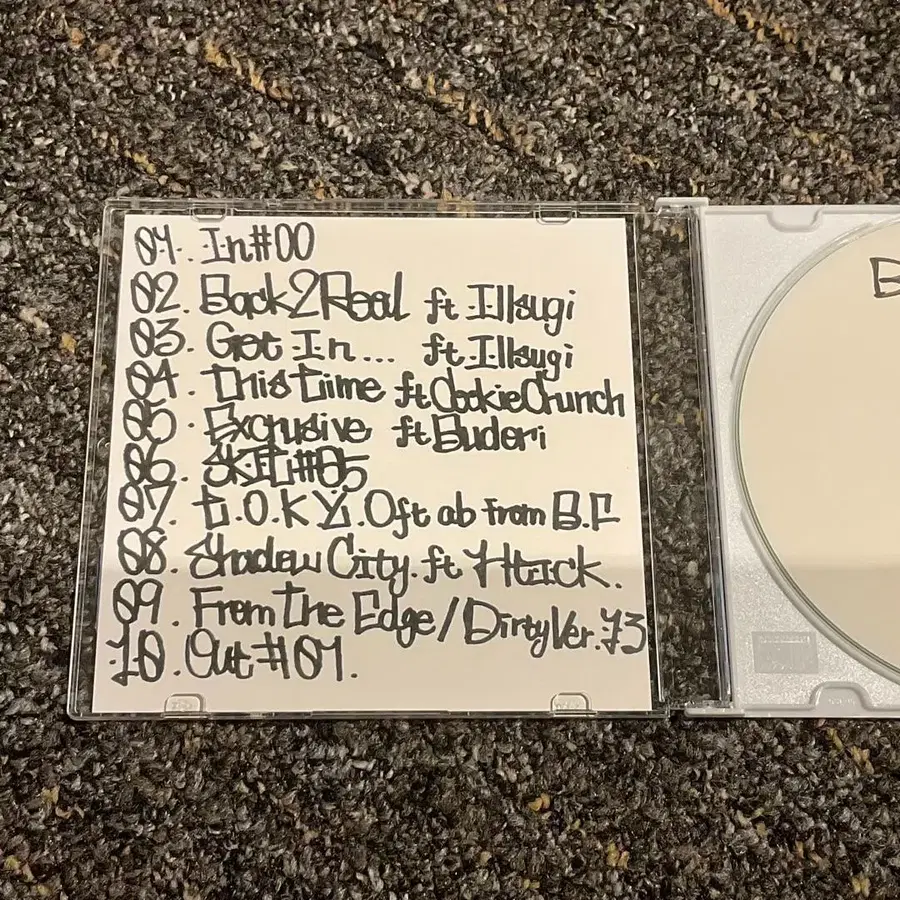 01. In#00
02. Back2Real ft Illsugi
03. Get In... ft Illsugi
04. This time ft CookieCrunch
05. Excrusive ft Budori
06. SKIt#05
07. t.O.K.Y.O ft ab from B.C
08. Shadow City. ft
09. From the Edge/Dirty Ver.
10. Out#01.
B